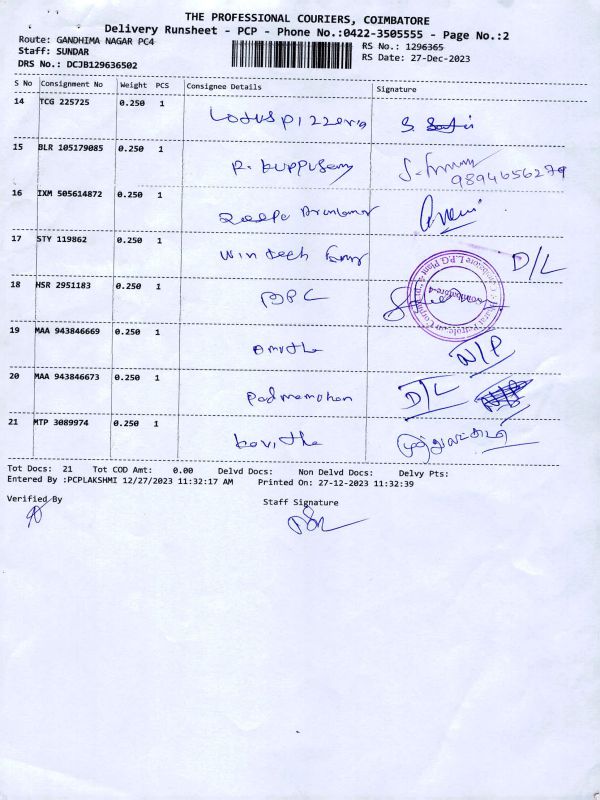 THE PROFESSIONAL COURIERS, COIMBATORE
Delivery Runsheet - PCP - Phone No.:0422-3505555 - Page No.:2
Route: GANDHIMA NAGAR PC4
RS No.: 1296365
Staff: SUNDAR
RS Date: 27-Dec-2023
DRS No.: DCJB129636502
S No Consignment No Weight PCS Consignee Details Signature
14 TCG 225725 0.250 1 Lotus pizzeria
15 BLR 105179085 0.250 1 R. kuppusamy
9894656279
16 IXM 505614872 0.250 1
17 STY 119862 0.250 1 Win tech D/L
18 HSR 2951183 0.250 1 BPC
19 MAA 943846669 0.250 1 Amutha N/P
20 MAA 943846673 0.250 1 Padmamohan D/L
21 MTP 3089974 0.250 1 kavitha
Tot Docs: 21 Tot COD Amt: 0.00 Delvd Docs: Non Delvd Docs: Delvy Pts:
Entered By :PCPLAKSHMI 12/27/2023 11:32:17 AM Printed On: 27-12-2023 11:32:39
Verified By Staff Signature